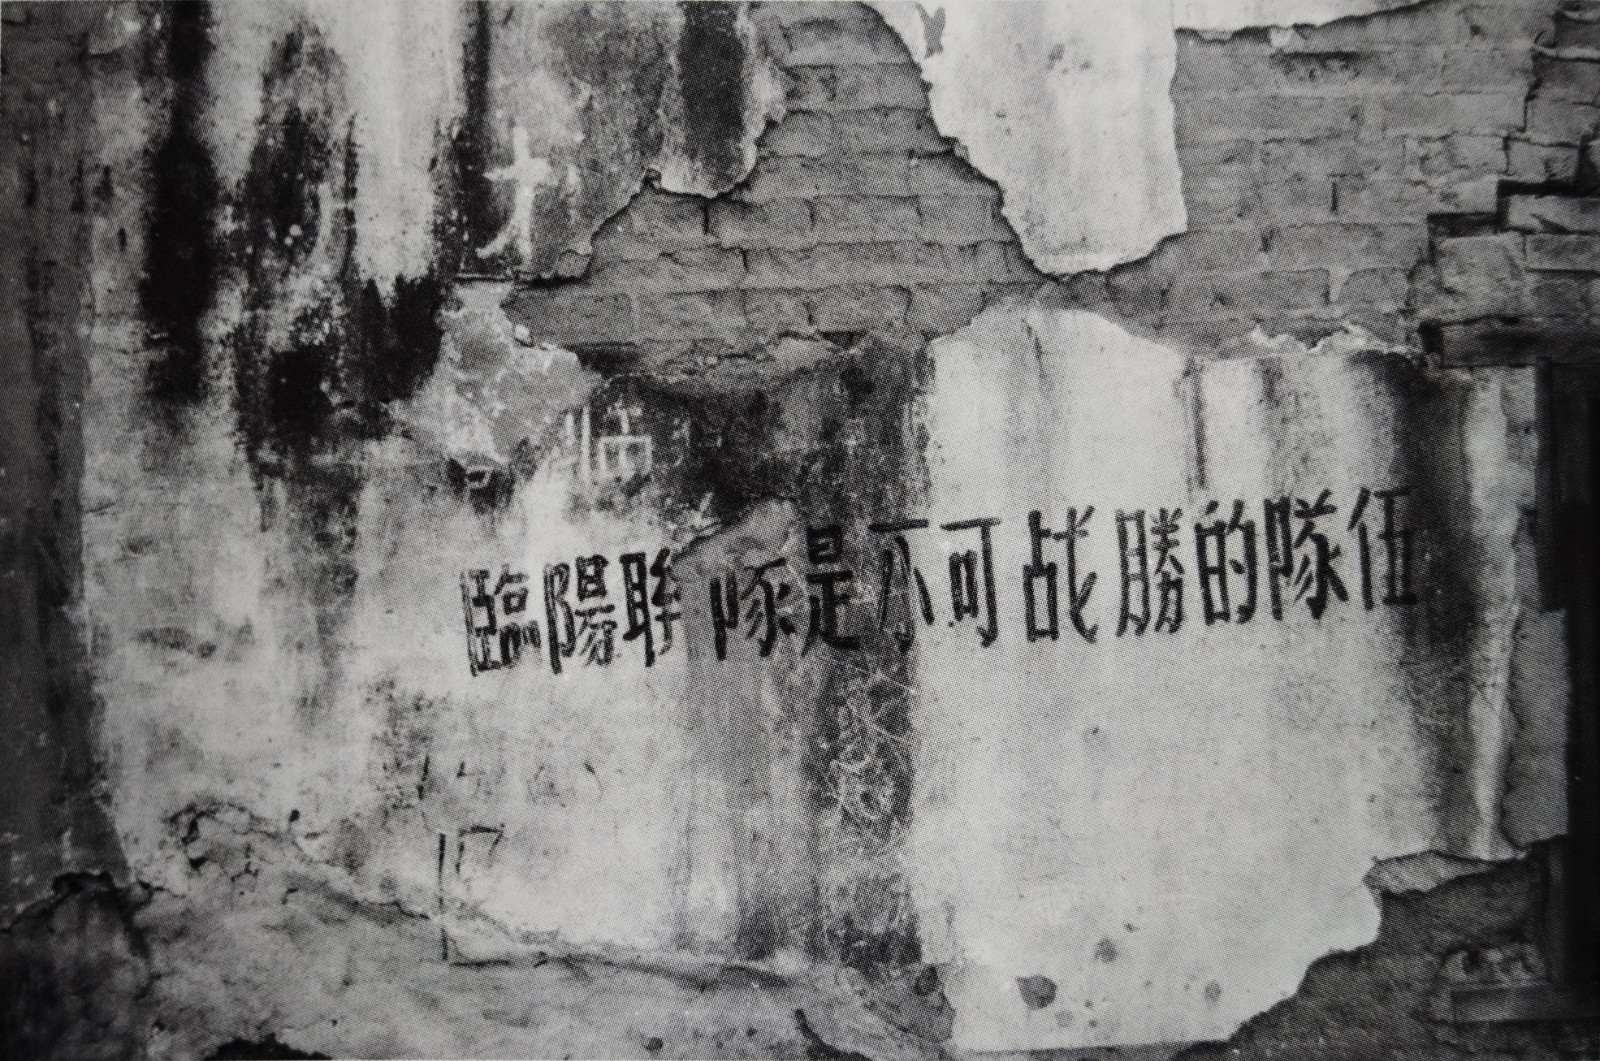 臨陽联隊是不可战勝的隊伍